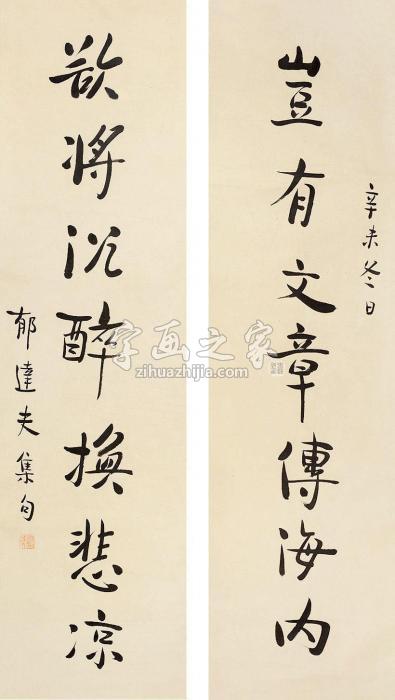 豈有文章傳海内
辛未冬日
欲將沉醉換悲凉
郁達夫集句
字画之家
zihuazhijia.com